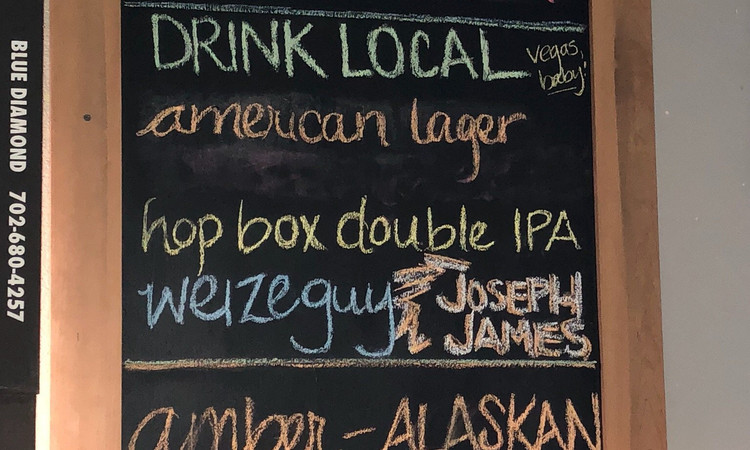 DRINK LOCAL vegas, baby!
american lager
hop box double IPA
weizeguy JOSEPH JAMES
amber - ALASKAN
BLUE DIAMOND 702-680-4257